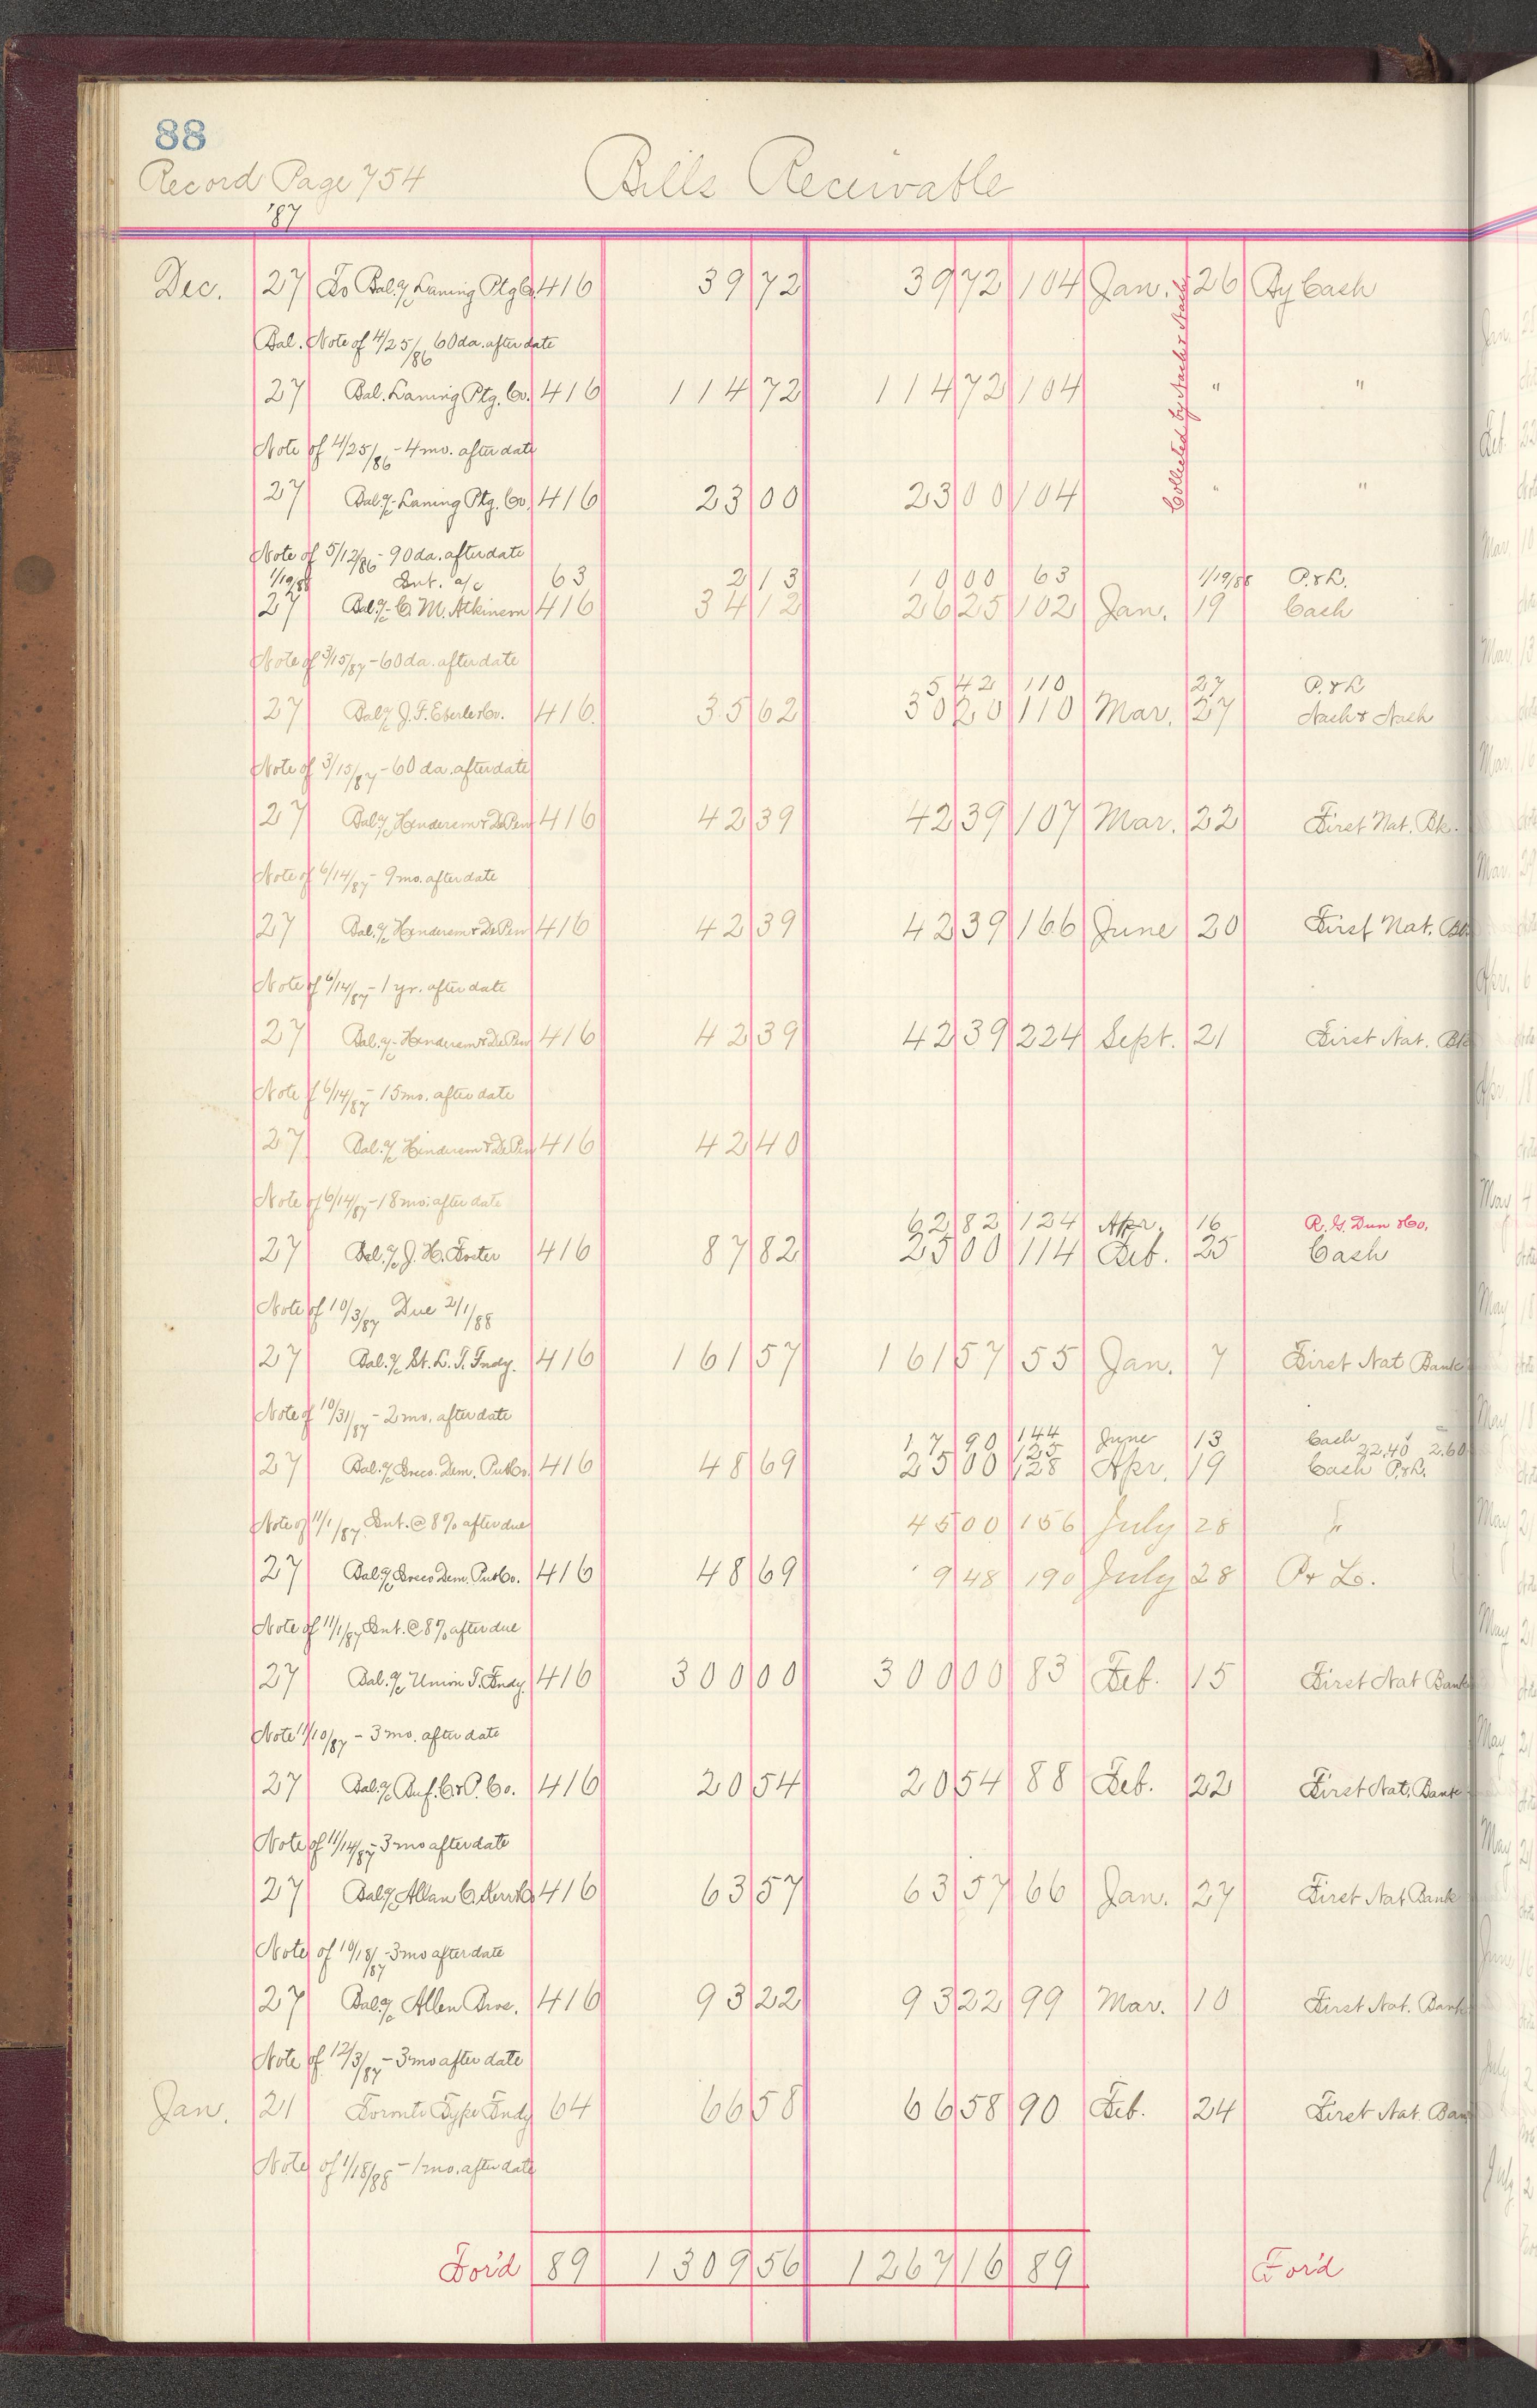 88
Record Page 754
Bills Receivable
'87
Dec. 27 To Bal. a/c Laning Ptg Co 416 39 72 39 72 104 Jan. 26 By Cash
Collected by Nash & Nash
Bal. Note of 4/25/86 60 da. after date
27 Bal. Laning Ptg. Co. 416 114 72 114 72 104 " "
Note of 4/25/86 - 4 mo. after date
27 Bal. a/c Laning Ptg. Co. 416 23 00 23 00 104 " "
Note of 5/12/86 - 90 da. after date
1/19/88 Int. a/c 63 2 13 10 00 63 1/19/88 P. & L.
27 Bal. a/c C. M. Atkinson 416 34 12 26 25 102 Jan. 19 Cash
Note of 3/15/87 - 60 da. after date
5 42 110 27 P. & L
27 Bal a/c J. F. Eberle & Co. 416 35 62 30 20 110 Mar. 27 Nash & Nash
Note of 3/15/87 - 60 da. after date
27 Bal a/c Henderson & DePen 416 42 39 42 39 107 Mar. 22 First Nat. Bk.
Note of 6/14/87 - 9 mo. after date
27 Bal. a/c Henderson & DePen 416 42 39 42 39 166 June 20 First Nat. Bk
Note of 6/14/87 - 1 yr. after date
27 Bal. a/c Henderson & DePen 416 42 39 42 39 224 Sept. 21 First Nat. Bk
Note of 6/14/87 - 15 mo. after date
27 Bal. a/c Henderson & DePen 416 42 40
Note of 6/14/87 - 18 mo. after date
62 82 124 Apr. 16 R. G. Dun & Co.
27 Bal. a/c J. H. Foster 416 87 82 25 00 114 Feb. 25 Cash
Note of 10/3/87 Due 2/1/88
27 Bal. a/c St. L. T. Fndy. 416 161 57 161 57 55 Jan. 7 First Nat Bank
Note of 10/31/87 - 2 mo. after date
17 90 144 June 13 Cash
125 22.40 2.60
27 Bal. a/c Dem. Pub Co. 416 48 69 25 00 128 Apr. 19 Cash P. & L.
Note of 11/1/87 Int. @ 8% after due 45 00 156 July 28 "
27 Bal a/c Dem. Pub Co. 416 48 69 9 48 190 July 28 P & L.
Note of 11/1/87 Int. @ 8% after due
27 Bal. a/c Union T. Fndy 416 300 00 300 00 83 Feb. 15 First Nat Bank
Note 11/10/87 - 3 mo. after date
27 Bal. a/c Buf. C. & P. Co. 416 20 54 20 54 88 Feb. 22 First Nat. Bank
Note of 11/14/87 - 3 mo after date
27 Bal a/c Allan C. Kerr & Co 416 63 57 63 57 66 Jan. 27 First Nat Bank
Note of 10/18/87 - 3 mo after date
27 Bal a/c Allen Bros. 416 93 22 93 22 99 Mar. 10 First Nat. Bank
Note of 12/3/87 - 3 mo after date
Jan. 21 Toronto Type Fndy 64 66 58 66 58 90 Feb. 24 First Nat. Ban
Note of 1/18/88 - 1 mo. after date
For'd 89 1309 56 1267 16 89 For'd